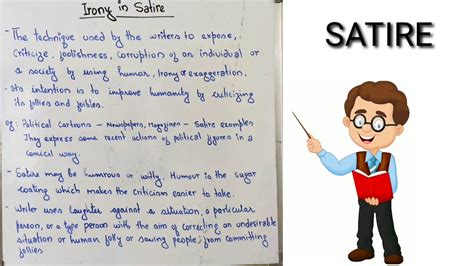 Irony in Satire
- The technique used by the writers to expose,
criticize, foolishness, corruption of an individual or
a society by using humor, Irony or exaggeration.
- Its intention is to improve humanity by criticizing
its follies and foibles.
eg: Political Cartoons - Newspapers, Magazines - Satire examples
They express some recent actions of political figures in a
comical way.
- Satire may be humrous or witty. Humour is the sugar
coating which makes the criticism easier to take.
- Writer uses laughter against a situation, a particular
person, or a type person with the aim of correcting an undesirable
situation or human folly or saving people from committing
follies.
SATIRE